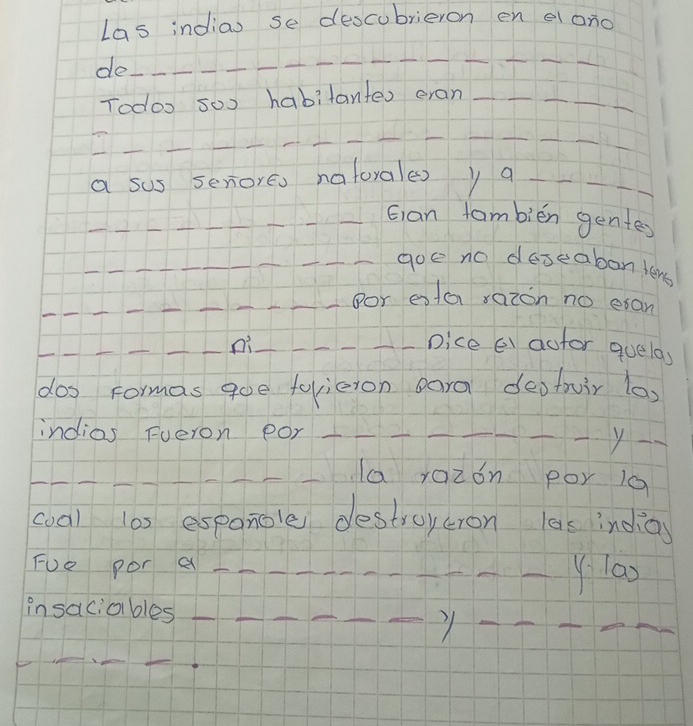 Las indias se descubrieron en el año
de ____________
Todos sus habitantes eran _____
____________
a sus señores naturales y a _____
_________ Eran también gentes
_________ que no deseaban tene
_________ Por esta razón no eran
______ ni ______ Dice el autor que las
dos formas que tuvieron para destruir las
indias Fueron por _________ y __
_________ la razón por la
cual los españole destruyeron las indias
Fue por a __________ y las
insaciables ______ y _____
____.